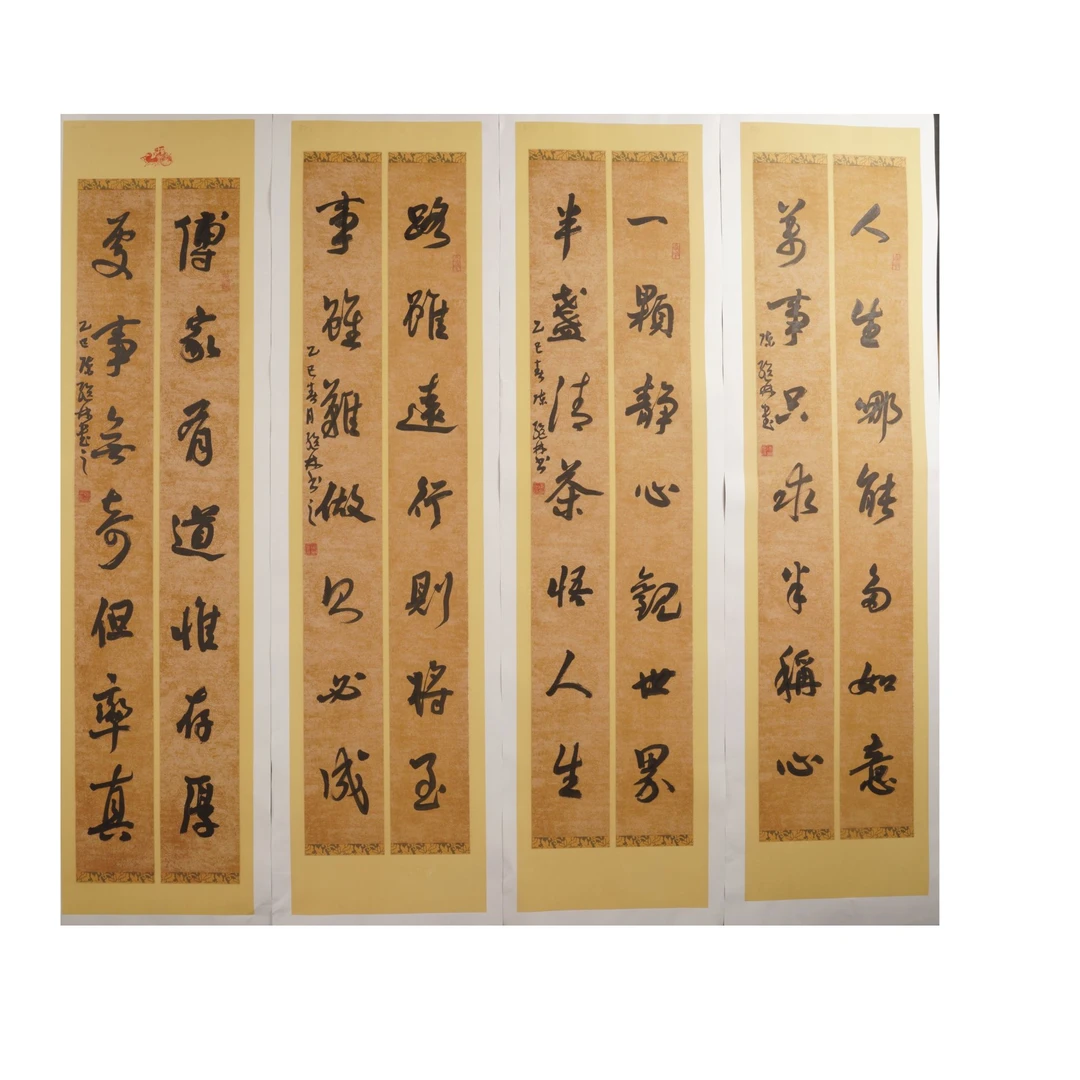 人生哪能多如意
萬事只求半稱心
一顆靜心觀世界
半盞清茶悟人生
乙巳春
路雖遠行則將至
事雖難做則必成
乙巳春月
傳家有道惟存厚
處事無奇但率真
乙巳